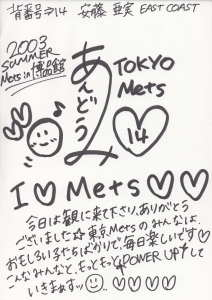 背番号⇒14 安藤 亜実 EAST COAST
2003
SUMMER
Mets in 博品館
あんどう
TOKYO
Mets
14
I ♡ Mets ♡♡
今日は観に来て下さり、ありがとう
ございました☆東京Metsのみんなは、
おもしろい方たちばかりで、毎日楽しいです♡
こんなみんなと、もっともっとPOWER UPして
いきまぁすッ